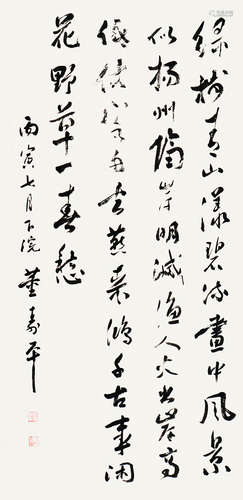 綠樹青山漾碧流畫中風景
似楊州隔岸明滅漁人火出岸高
低 舟去燕來鴻千古事閑
花野草一春愁
丙寅七月下浣 董壽平